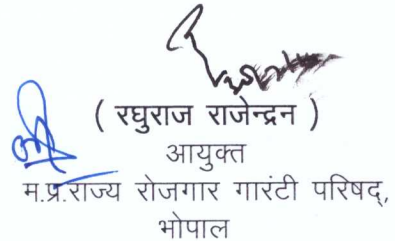 ( रघुराज राजेन्द्रन )
आयुक्त
म.प्र.राज्य रोजगार गारंटी परिषद्,
भोपाल